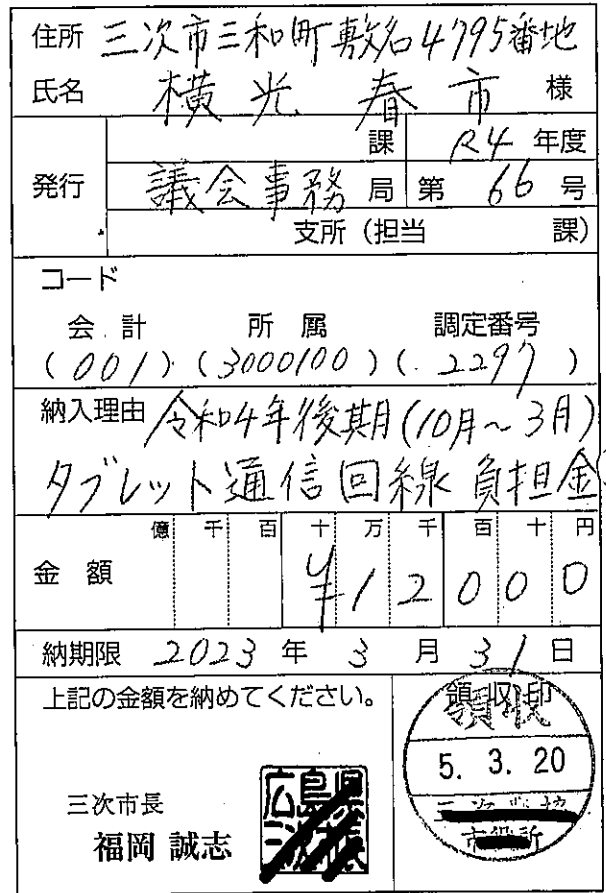 住所 三次市三和町敷名4795番地
氏名 横光 春市 様
発行
課 R4 年度
議会事務 局 第 66 号
支所 (担当 課)
コード
会計 所属 調定番号
(001) (3000100) (2297)
納入理由 令和4年後期(10月~3月)
タブレット通信回線負担金
億 千 百 十 万 千 百 十 円
金額 ¥12000
納期限 2023 年 3 月 31 日
上記の金額を納めてください。
三次市長
福岡 誠志
領収印
領収
5. 3. 20